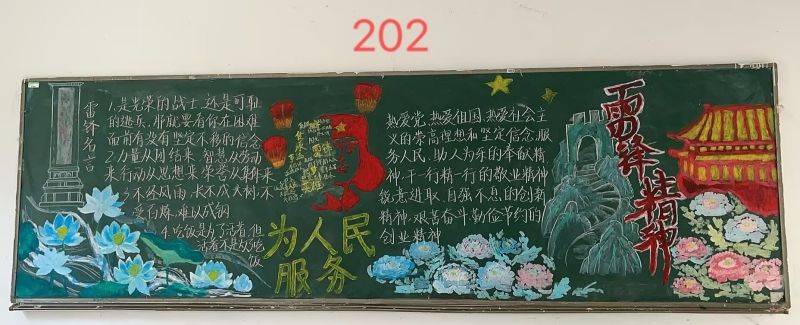 202
雷锋名言
1.是光荣的战士,还是可耻
的逃兵,那就要看你在困难
面前有没有坚定不移的信念
2.力量从团结来,智慧从劳动
来行动从思想来荣誉从集体来
3.不经风雨,长不成大树,不
受百炼,难以成钢
4.吃饭是为了活着,但
活着不是为了吃
饭
为人民
服务
热爱党,热爱祖国,热爱社会主
义的崇高理想和坚定信念,服
务人民,助人为乐的奉献精
神,干一行精一行的敬业精神
锐意进取,自强不息的创新
精神,艰苦奋斗勤俭节约的
创业精神
雷锋精神